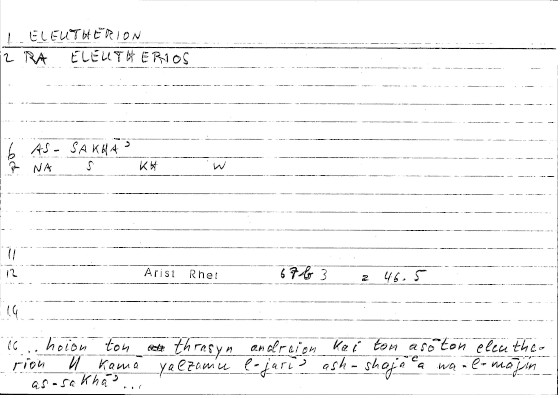 1 ELEUTHERION
2 RA ELEUTHERIOS
6 AS-SAKHĀʾ
7 NA S KH W
11
12 Arist Rhet 67b3 = 46.5
14
16 ..hoion ton thrasyn andreion kai ton asōton eleuthe-
rion // kamā yalzamu l-jarīʾ ash-shojāʿa wa-l-mājin
as-sakhāʾ...